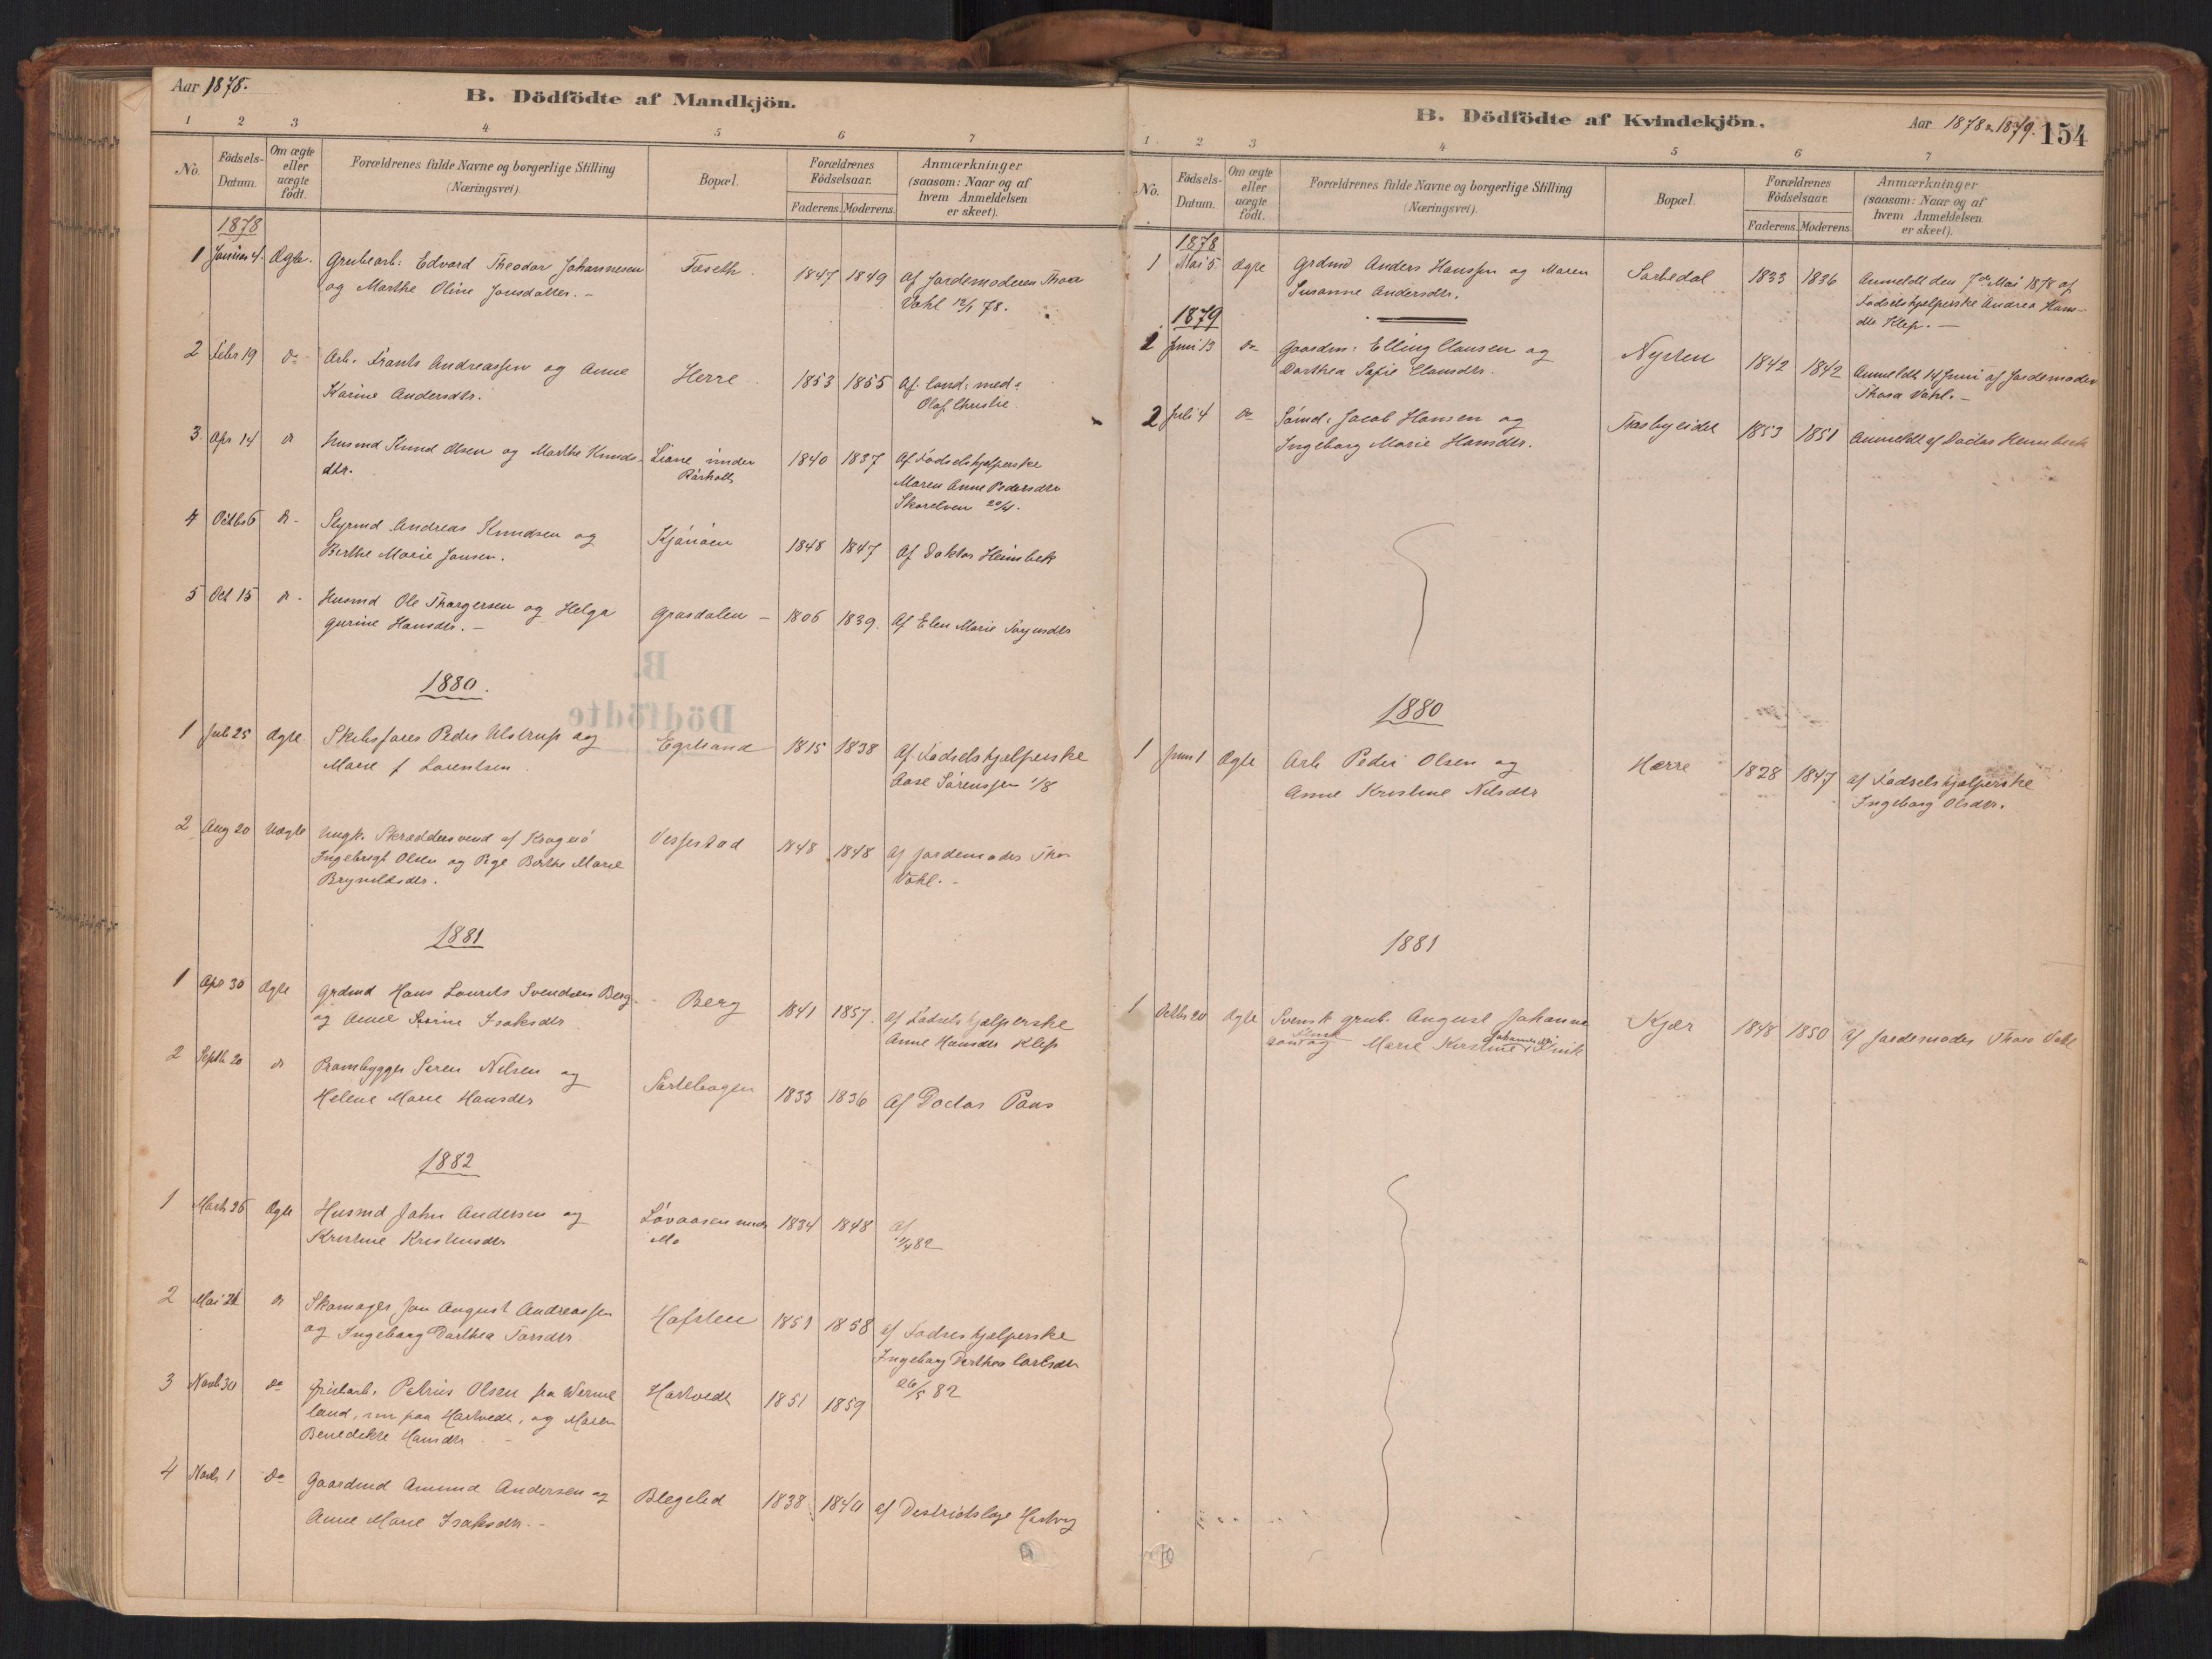 Aar 1878.
B. Dödfödte af Mandkjön.
1 2 3 4 5 6 7
No.
Födsels-
Datum.
Om ægte
eller
uægte
født.
Forældrenes fulde Navne og borgerlige Stilling
(Næringsvei).
Bopæl.
Forældrenes
Födselsaar.
Faderens. Moderens.
Anmærkninger
(saasom: Naar og af
hvem Anmeldelsen
er skeet).
1878
1 Januar 4. Ægte. Grubearb: Edvard Theodor Johannesen Toseth 1847 1849 Af Jordemoderen Thora
og Marthe Oline Jonsdatter. - Vahl 12/1 78.
2 Febr 19 do Arb. Frants Andreassen og Anne Herre 1853 1855 Af: cand: med:
Karine Andersdtr. Olaf Christie
3. Apr 14 do Husmd Knud Olsen og Marthe Knuds- Liane under 1840 1837 Af Fødselshjælperske
dtr. Rörholt Maren Anne Pedersdtr
Skarelven 20/4.
4 Octbr 6 do - Styrmd Andreas Knudsen og Kjönöen 1848 1847 Af Doktor Heimbek
Birthe Marie Jansen.
5 Oct 15 do - Husmd Ole Thorgersen og Helga Grasdalen - 1806 1839. Af Elen Marie
Gurine Hansdtr. -
1880.
1 Juli 25 Ægte Skibsfører Peder Ulstrup og Egelsand 1815 1838 Af Fødselshjælperske
Marie f Lorentsen Aase Sörenssen 1/8
2 Aug 20 Uægte Ungk. Skræddersvend af Kragerö 1848 1848 Af Jordemoder Thora
Ingebrigt Olsen og Pige Birthe Marie Vahl. -
Bryníldsdtr.
1881
1 Apr 30 Ægte Grdmd Hans Lourits Svendsen Berg Berg 1841 1857. af Fødselshjælperske
og Anne Isaksdtr Anne Hansdtr Klep
2 Septb 20 do Prambygger Søren Nilsen og 1833 1836 Af Doctor Paus
Helene Marie Hansdtr
1882
1 Marts 26 Ægte Husmd John Andersen og Lövaasen under 1834 1848 af
Kristine Kristensdtr Mo 82
2 Mai 21 do Skomager Jon August Andreassen Hafsten 1851 1858 af Fødselshjælperske
og Ingeborg Dorthea Torsdtr. Ingeborg Dorthea Carlsdtr
26/5 82
3 Novb 30 do Petrus Olsen fra Werme Hartvedt 1851 1859
land, nu paa Hartvedt, og Maren
Benedikte Hansdtr -
4 Novb 1 do Gaardmd Amund Andersen og Blegelid 1838 1840 af Destriktslæge Hartvig
Anne Marie Isaksdtr. -
B.
Dödfödte
B. Dödfödte af Kvindekjön.
Aar 1878 & 1879. 154
1 2 3 4 5 6 7
No.
Födsels-
Datum.
Om ægte
eller
uægte
født.
Forældrenes fulde Navne og borgerlige Stilling
(Næringsvei).
Bopæl.
Forældrenes
Födselsaar.
Faderens. Moderens.
Anmærkninger
(saasom: Naar og af
hvem Anmeldelsen
er skeet).
1878
1 Mai 5 Ægte Grdmd Anders Hanssen og Maren Sorbedal 1833 1836 Anmeldt den 7de Mai 1878 af
Susanne Andersdtr. Fødselshjælperske Andrea Hans-
dtr Klep. -
1879
1 Juni 13 do Gaardm: Elling Clausen og Nysten 1842 1842 Anmeldt 14 Juni af Jordemoder
Dorthea Sofie Clausdtr. Thora Vahl. -
2 Juli 4 do Sömd: Jacob Hansen og Trosbyeidet 1853 1851 Anmeldt af Doctor Heimbeck
Ingeborg Marie Hansdtr.
1880
1 Juni 1 Ægte Arb Peder Olsen og Herre 1828 1847 af Fødselshjælperske
Anne Kristine Nilsdtr Ingeborg Olsdtr.
1881
1 Octbr 20 Ægte Svensk grub. August Johannes Kjær 1848 1850 Af Jordemoder Thora Vahl
son og Marie Kirstine